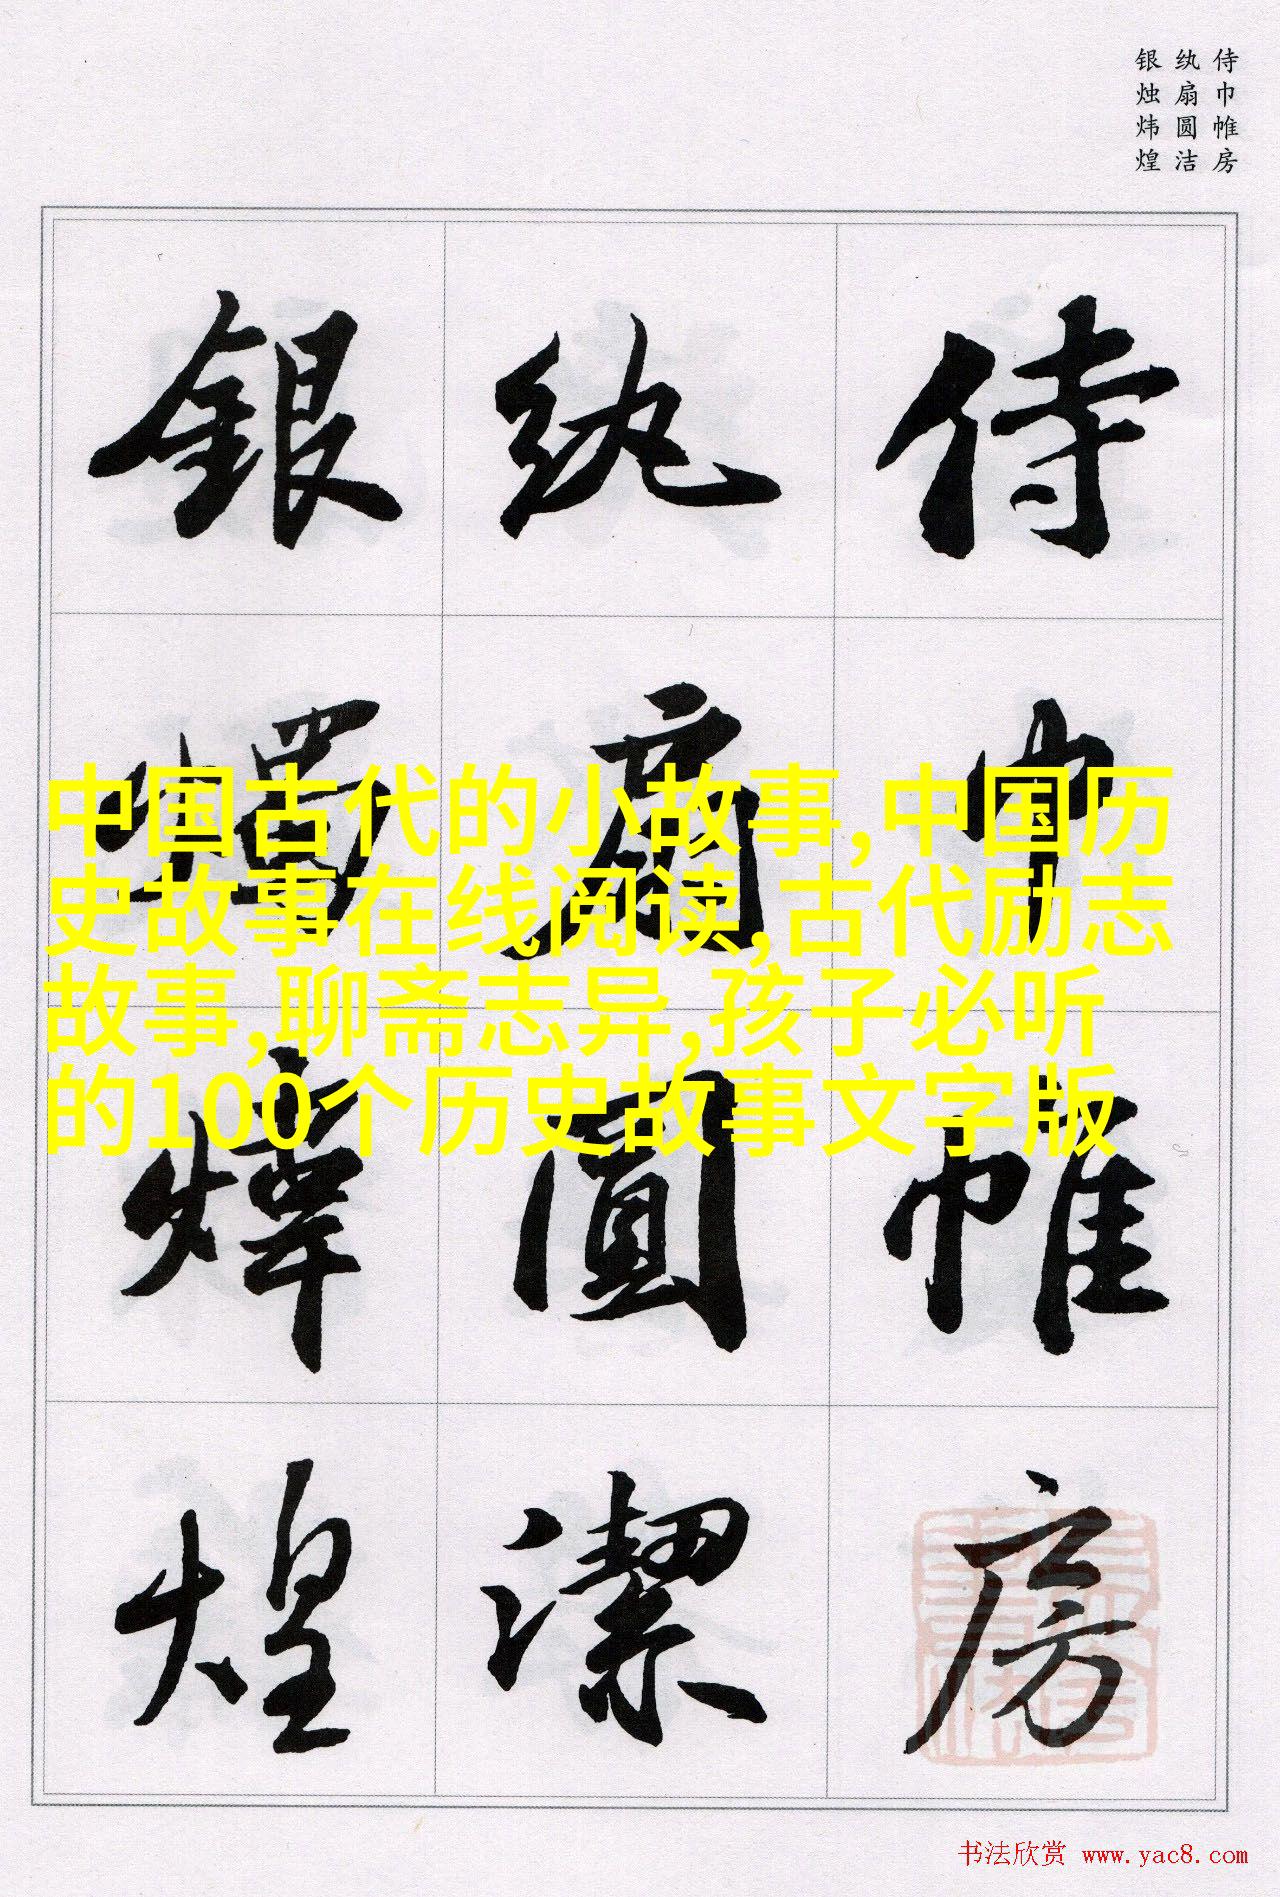 侍巾帷房
纨扇圆洁
银烛炜煌
侍巾帷房
纨扇圓潔
銀燭煒煌
中国古代的小故事,中国历
史故事在线阅读,古代励志
故事,聊斋志异,孩子必听
的100个历史故事文字版
书法欣赏 www.yac8.com